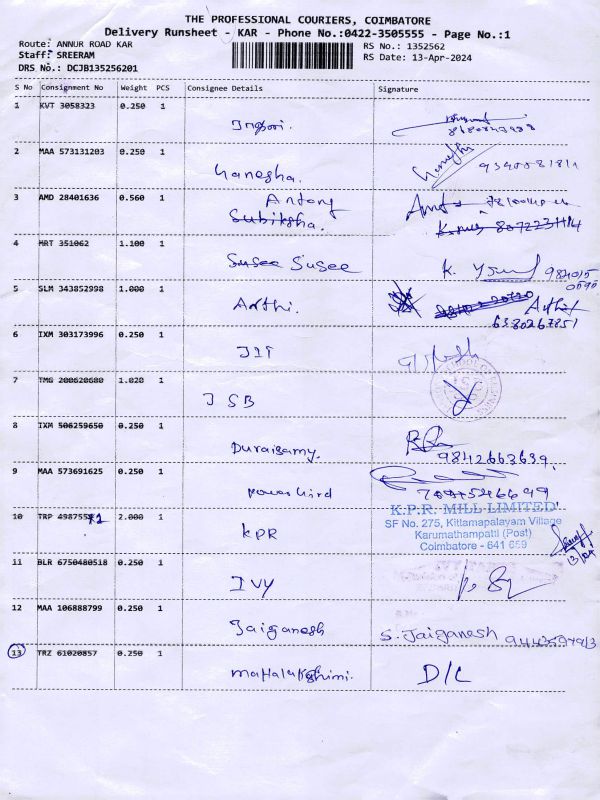 THE PROFESSIONAL COURIERS, COIMBATORE
Delivery Runsheet - KAR - Phone No.:0422-3505555 - Page No.:1
Route: ANNUR ROAD KAR
RS No.: 1352562
Staff: SREERAM
RS Date: 13-Apr-2024
DRS No.: DCJB135256201
S No Consignment No Weight PCS Consignee Details Signature
1 KVT 3058323 0.250 1
2 MAA 573131203 0.250 1
Ganesha.
3 AMD 28401636 0.560 1
Antony
Subiksha.
4 MRT 351062 1.100 1
Susee Susee
K.
5 SLM 343852998 1.000 1
Arthi.
6380267851
6 IXM 303173996 0.250 1
JIT
7 TMG 200620680 1.020 1
JSB
8 IXM 506259650 0.250 1
Duraisamy.
9842663639.
9 MAA 573691625 0.250 1
10 TRP 2.000 1
KPR
K.P.R. MILL LIMITED
SF No. 275, Kittamapalayam Village
Karumathampatti (Post)
Coimbatore - 641 659
13/04
11 BLR 6750480518 0.250 1
IVY
12 MAA 106888799 0.250 1
Jaiganesh
S. Jaiganesh
13 TRZ 61020857 0.250 1
Mahalakshimi.
D/L